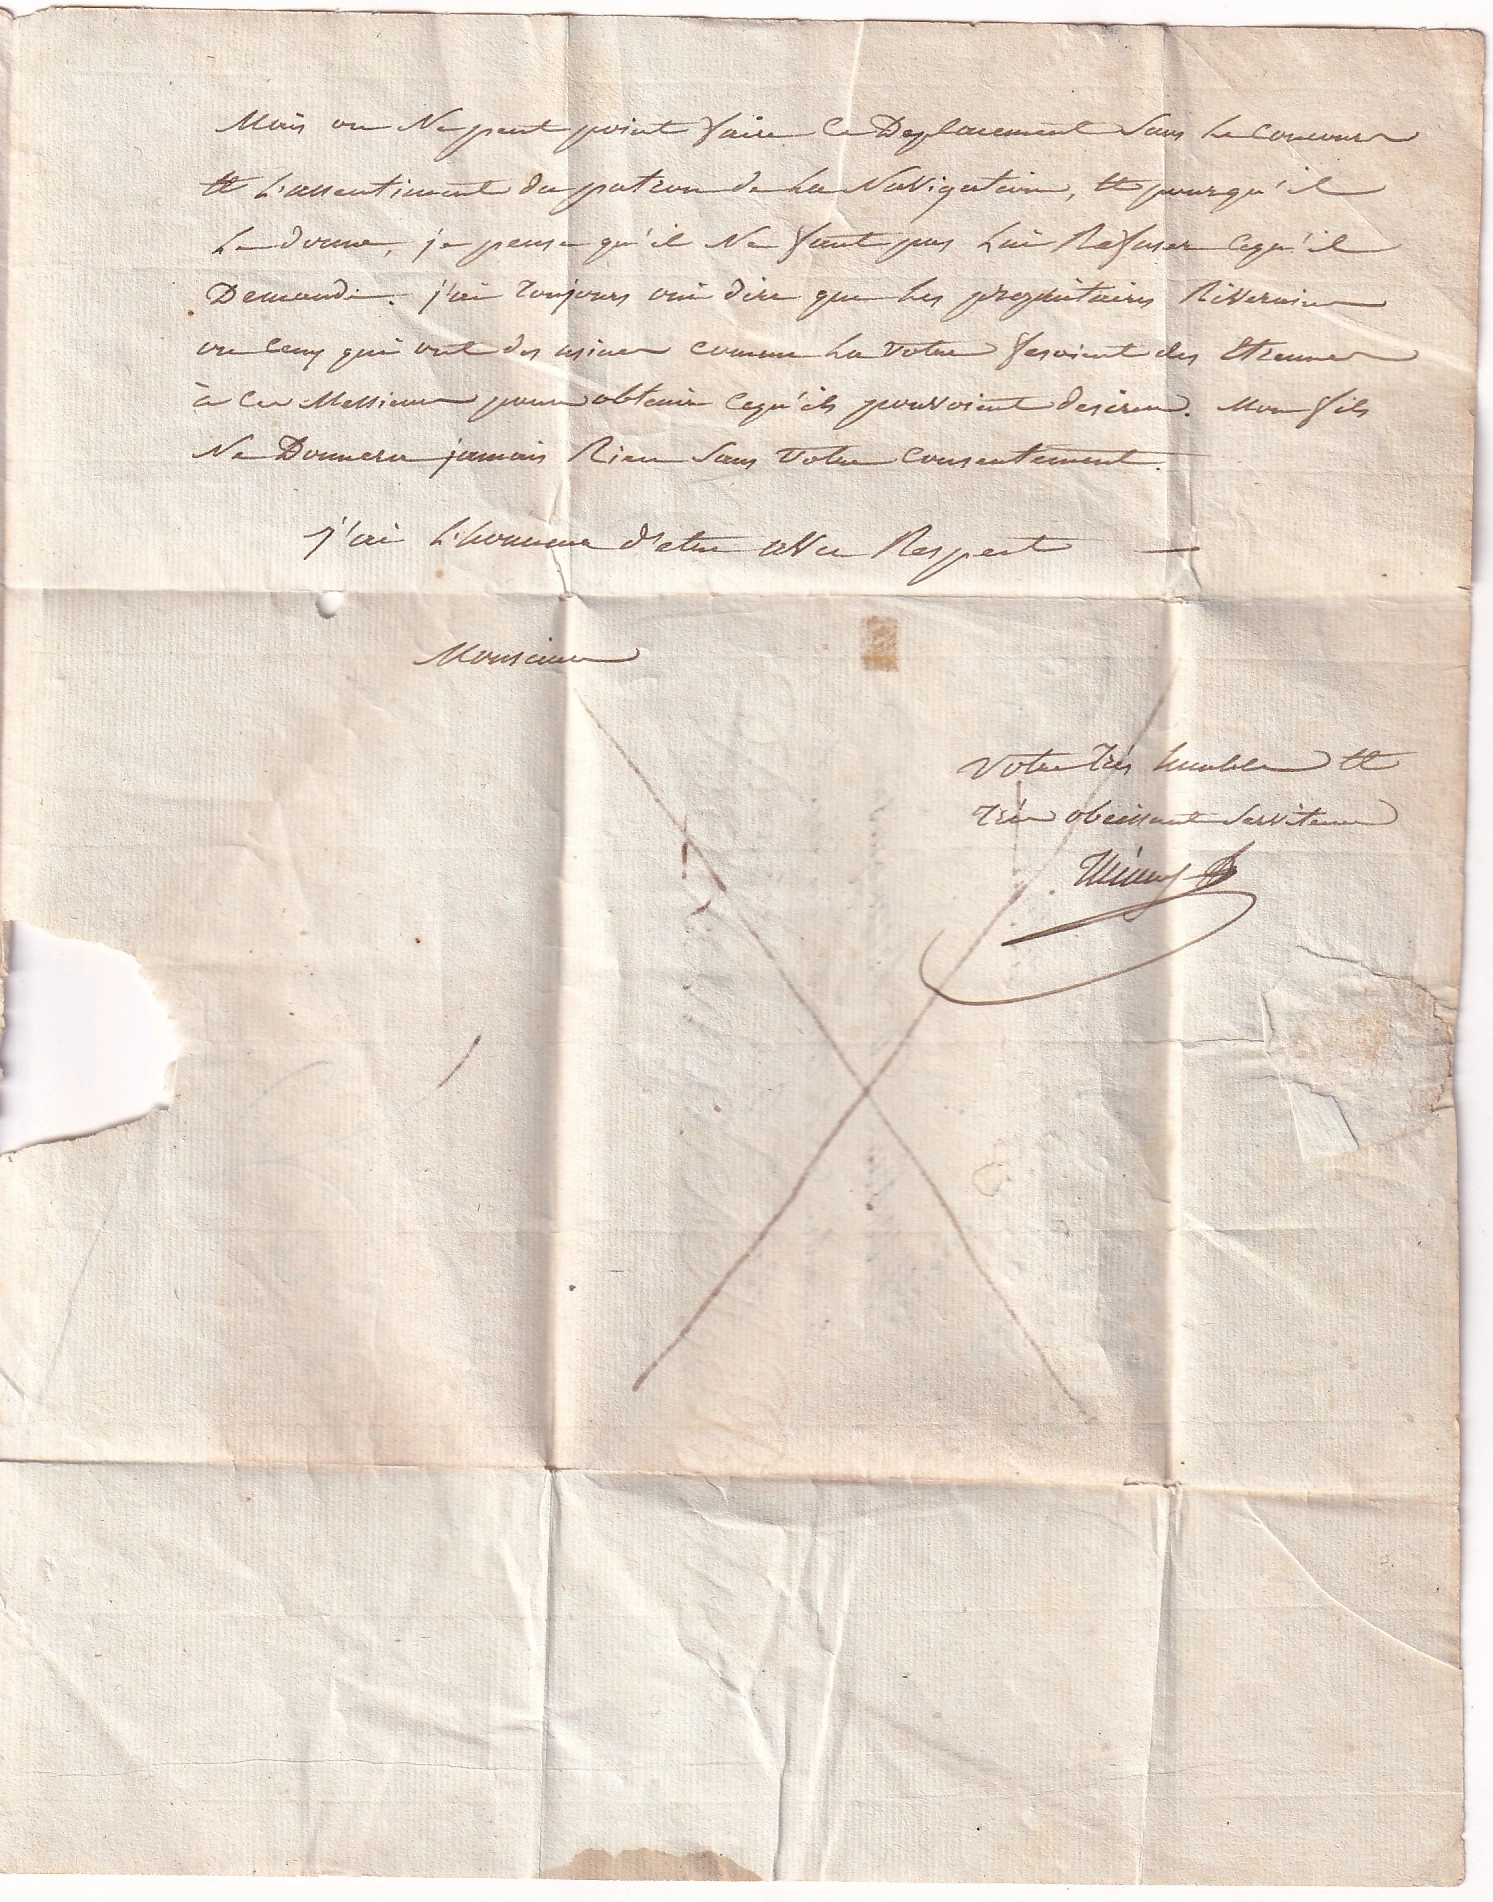 Mais on Ne peut point faire ce Deplacement sans Le concours
Et L'assentiment du patron de La Navigation, Et pour qu'il
Le donne, je pense qu'il Ne faut pas Lui Refuser ce qu'il
Demande. j'ai Toujours oui dire que Les proprietaires Riverains
ou ceux qui ont des usines comme La votre fesoient des Etrennes
à ces Messieurs pour obtenir ce qu'ils pouvoient desirer. Mon fils
Ne Donnera jamais Rien sans Votre Consentement.
j'ai L'honneur d'etre avec Respect
Monsieur
Votre Très humble Et
Très obeissant serviteur